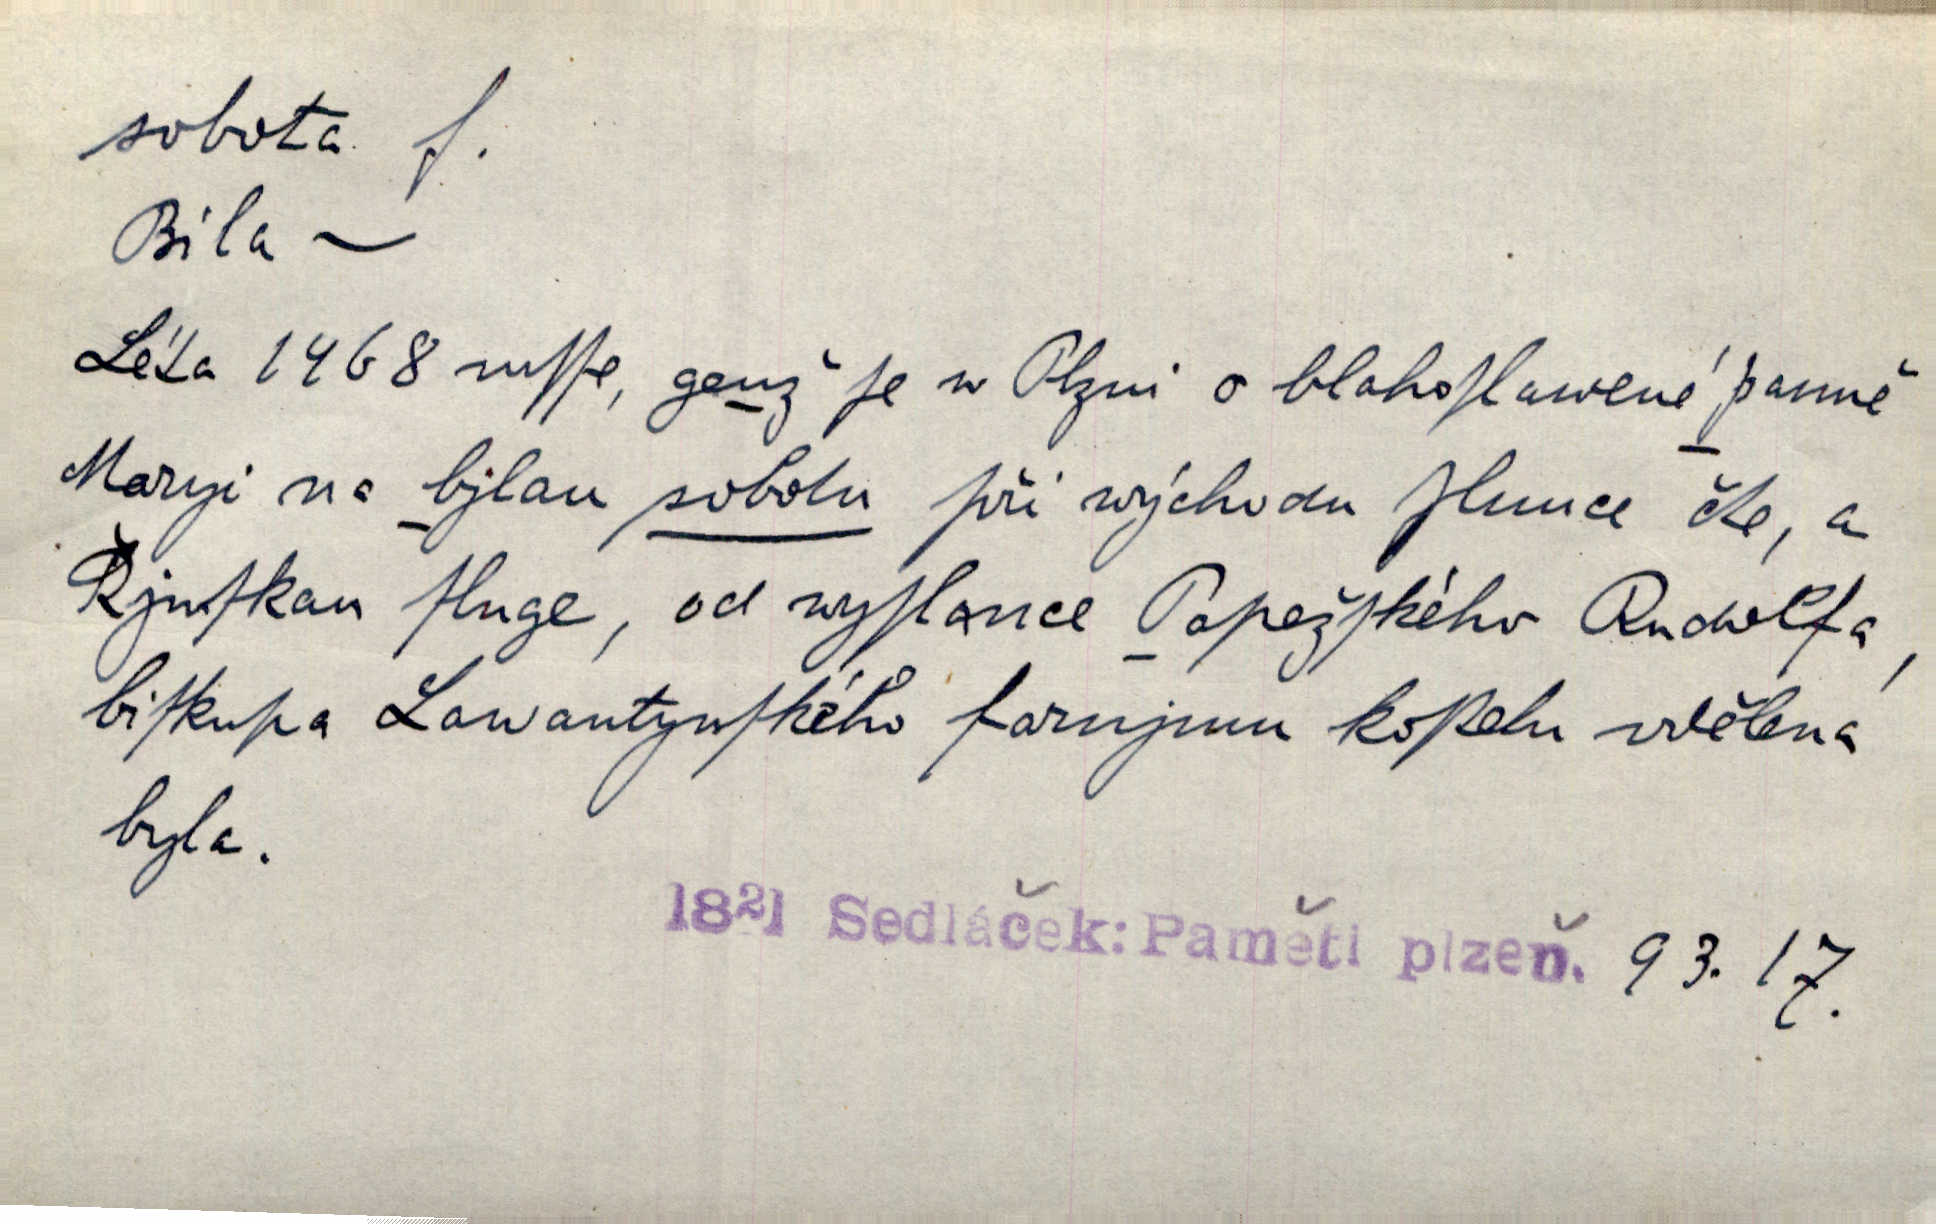 sobota f.
Bílá ~
Léta 1468 mſſe, genž ſe w Plzni o blahoſlawené panně
Maryi na bjlau sobotu při východu ſlunce čte, a
Řjmſkau ſluge, od wyſlance Papežſkého Rudolfa,
biſkupa Lawantynſkého farnjmu koſtelu vdělena
byla.
1821 Sedláček: Paměti plzeň. 93. 17.